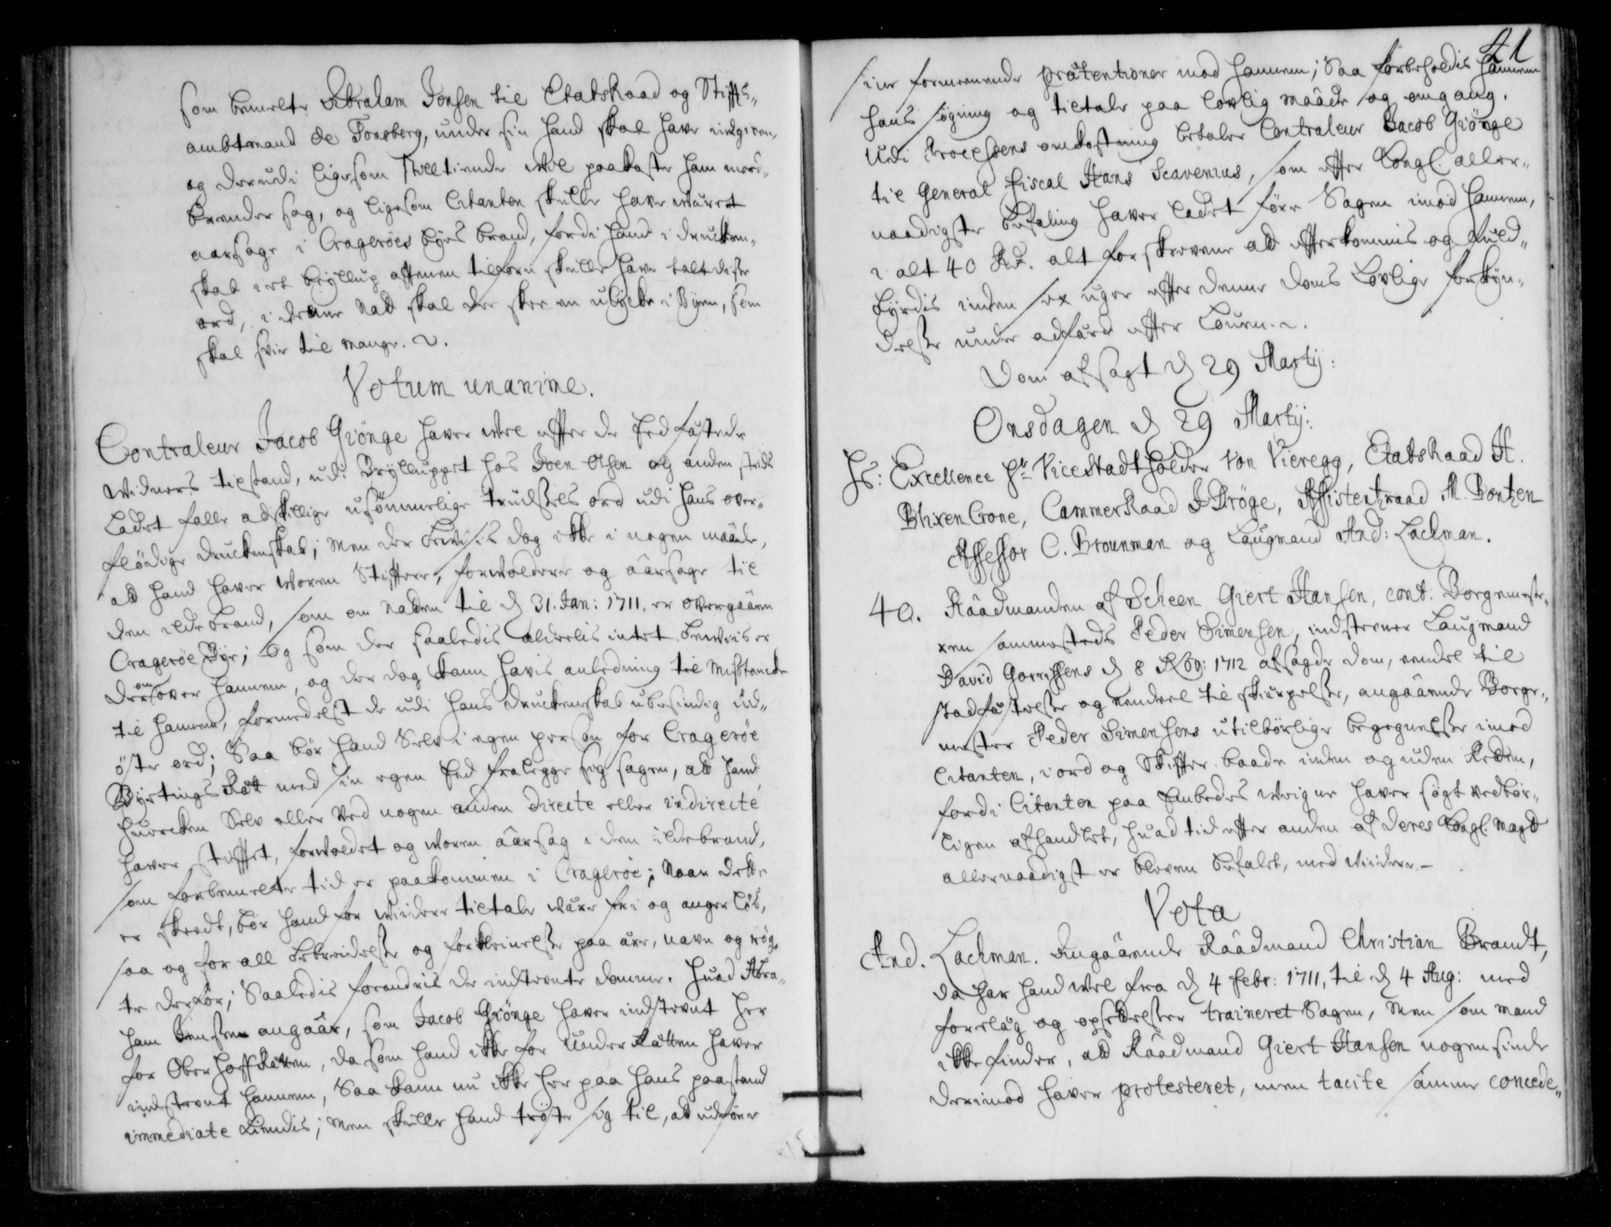 som bemelte Abraham Jensen til Etatsraad og Stiffts-
ambtmand de Tonsberg, under sin haand skal have indgiven,
og derudi ligesom stilltiende vil paakaste ham mord-
brender sag, og ligesom Citanten skulle have været
aarsage i Cragerøes Byes brand, fordi hand i drucken-
skab i et Bryllup afftenen tilforn skulle have talt disse
ord, i denne nat skal der skee en ulycke i Byen, som
skal svie til mange.
Votum unanime.
Contraleur Jacob Grönge haver vel effter de Eedfæstede
Widners tilstand, udi Brylluppet hos Joen Olsen og anden steds
ladet falle adskillige usömmelige trudsels ord udi hans over-
flödige druckenskab; men der bevises dog icke i nogen maade,
at hand haver voren Stiffter, forvoldere og aarsage til
den ildebrand, som om natten til d 31. Jan: 1711. er overgaaen
Cragerøe Bye; og som der saaledis aldeelis intet bewiis er
derom over hannem, og der dog kann havis anledning til Misstancke
til hannem, formedelst de udi hans druckenskab ubesindig ud-
öste ord; Saa bör hand Selv i egen person for Cragerøe
Byetings Ræt med sin egen Eed fralegge sig sagen, at hand
hvercken Selv eller ved nogen anden directe eller indirecte
haver stifftet, forvoldet og voren aarsag i den ildebrand,
som forbemelte tid er paakommen i Cragerøe; Naar dette
er skeedt, bör hand for viidere tiltale være frj og anger lös,
saa og for all bebreidelse og forkleinelse paa ære, navn og röc-
te derfor; Saaledis forandris de indstevnte domme. Hvad Abra-
ham Jensen angaar, som Jacob Grönge haver indstevnt her
for OberHoffRetten, da som hand icke for underRætten haver
indstevnt hannem, Saa kann nu icke her paa hans paastand
immediate kiendis; men skulle hand tröste sig til, at udföre
41
sine formeenende prætentioner mod hannem; Saa forbeholdis hannem
hans sögning og tiltale paa lovlig maade og omgang.
Udi Processens omkostning betaler Contraleur Jacob Grönge
til General Fiscal Hans Scavenius, som effter Kongl: aller-
naadigste befaling haver ladet före Sagen imod hannem,
i alt 40 Rdr. alt forskrevene at effterkommis og fuld-
byrdis inden sex uger effter denne doms Lovlige forkyn-
delse under adfærd effter Loven.
Dom afsagt d 29 Martij:
Onsdagen d 29 Martij:
Hs: Excellence Hr ViceStadtholder von Vieregg, Etatsraad H.
BlixenCrone, CammerRaad J. Dröge, Assistentzraad M. Bontzen
Assessor C. Brounman og Laugmand And: Lachman.
40. Raadmanden af Scheen Giert Hansen, cont. Borgemeste-
ren sammesteds Peder Simensen, indstevner Laugmand
David Gorrissens d 8 Nov: 1712 afsagde dom, eendeel til
stadfæstelse og eendeel til skierpelse, angaaende Borge-
mester Peder Simensens utilbörlige begegnelse imod
Citanten, i ord og Skiffter baade inden og uden Retten,
fordi Citanten paa Embedes weigne haver sögt vedbör-
ligen afhandlet, huad tid effter anden af Deres Kongl. Mayt
allernaadigst er bleven befalet, med viidere.
Vota
And. Lachman. Angaaende Raadmand Christian Brandt,
da har hand vel fra d 4 Febr: 1711, til d 4 Aug: med
forelæg og opsættelser traineret Sagen, Men som mand
icke finder, at Raadmand Giert Hansen nogensinde
derimod haver protesteret, men tacite samme concede-